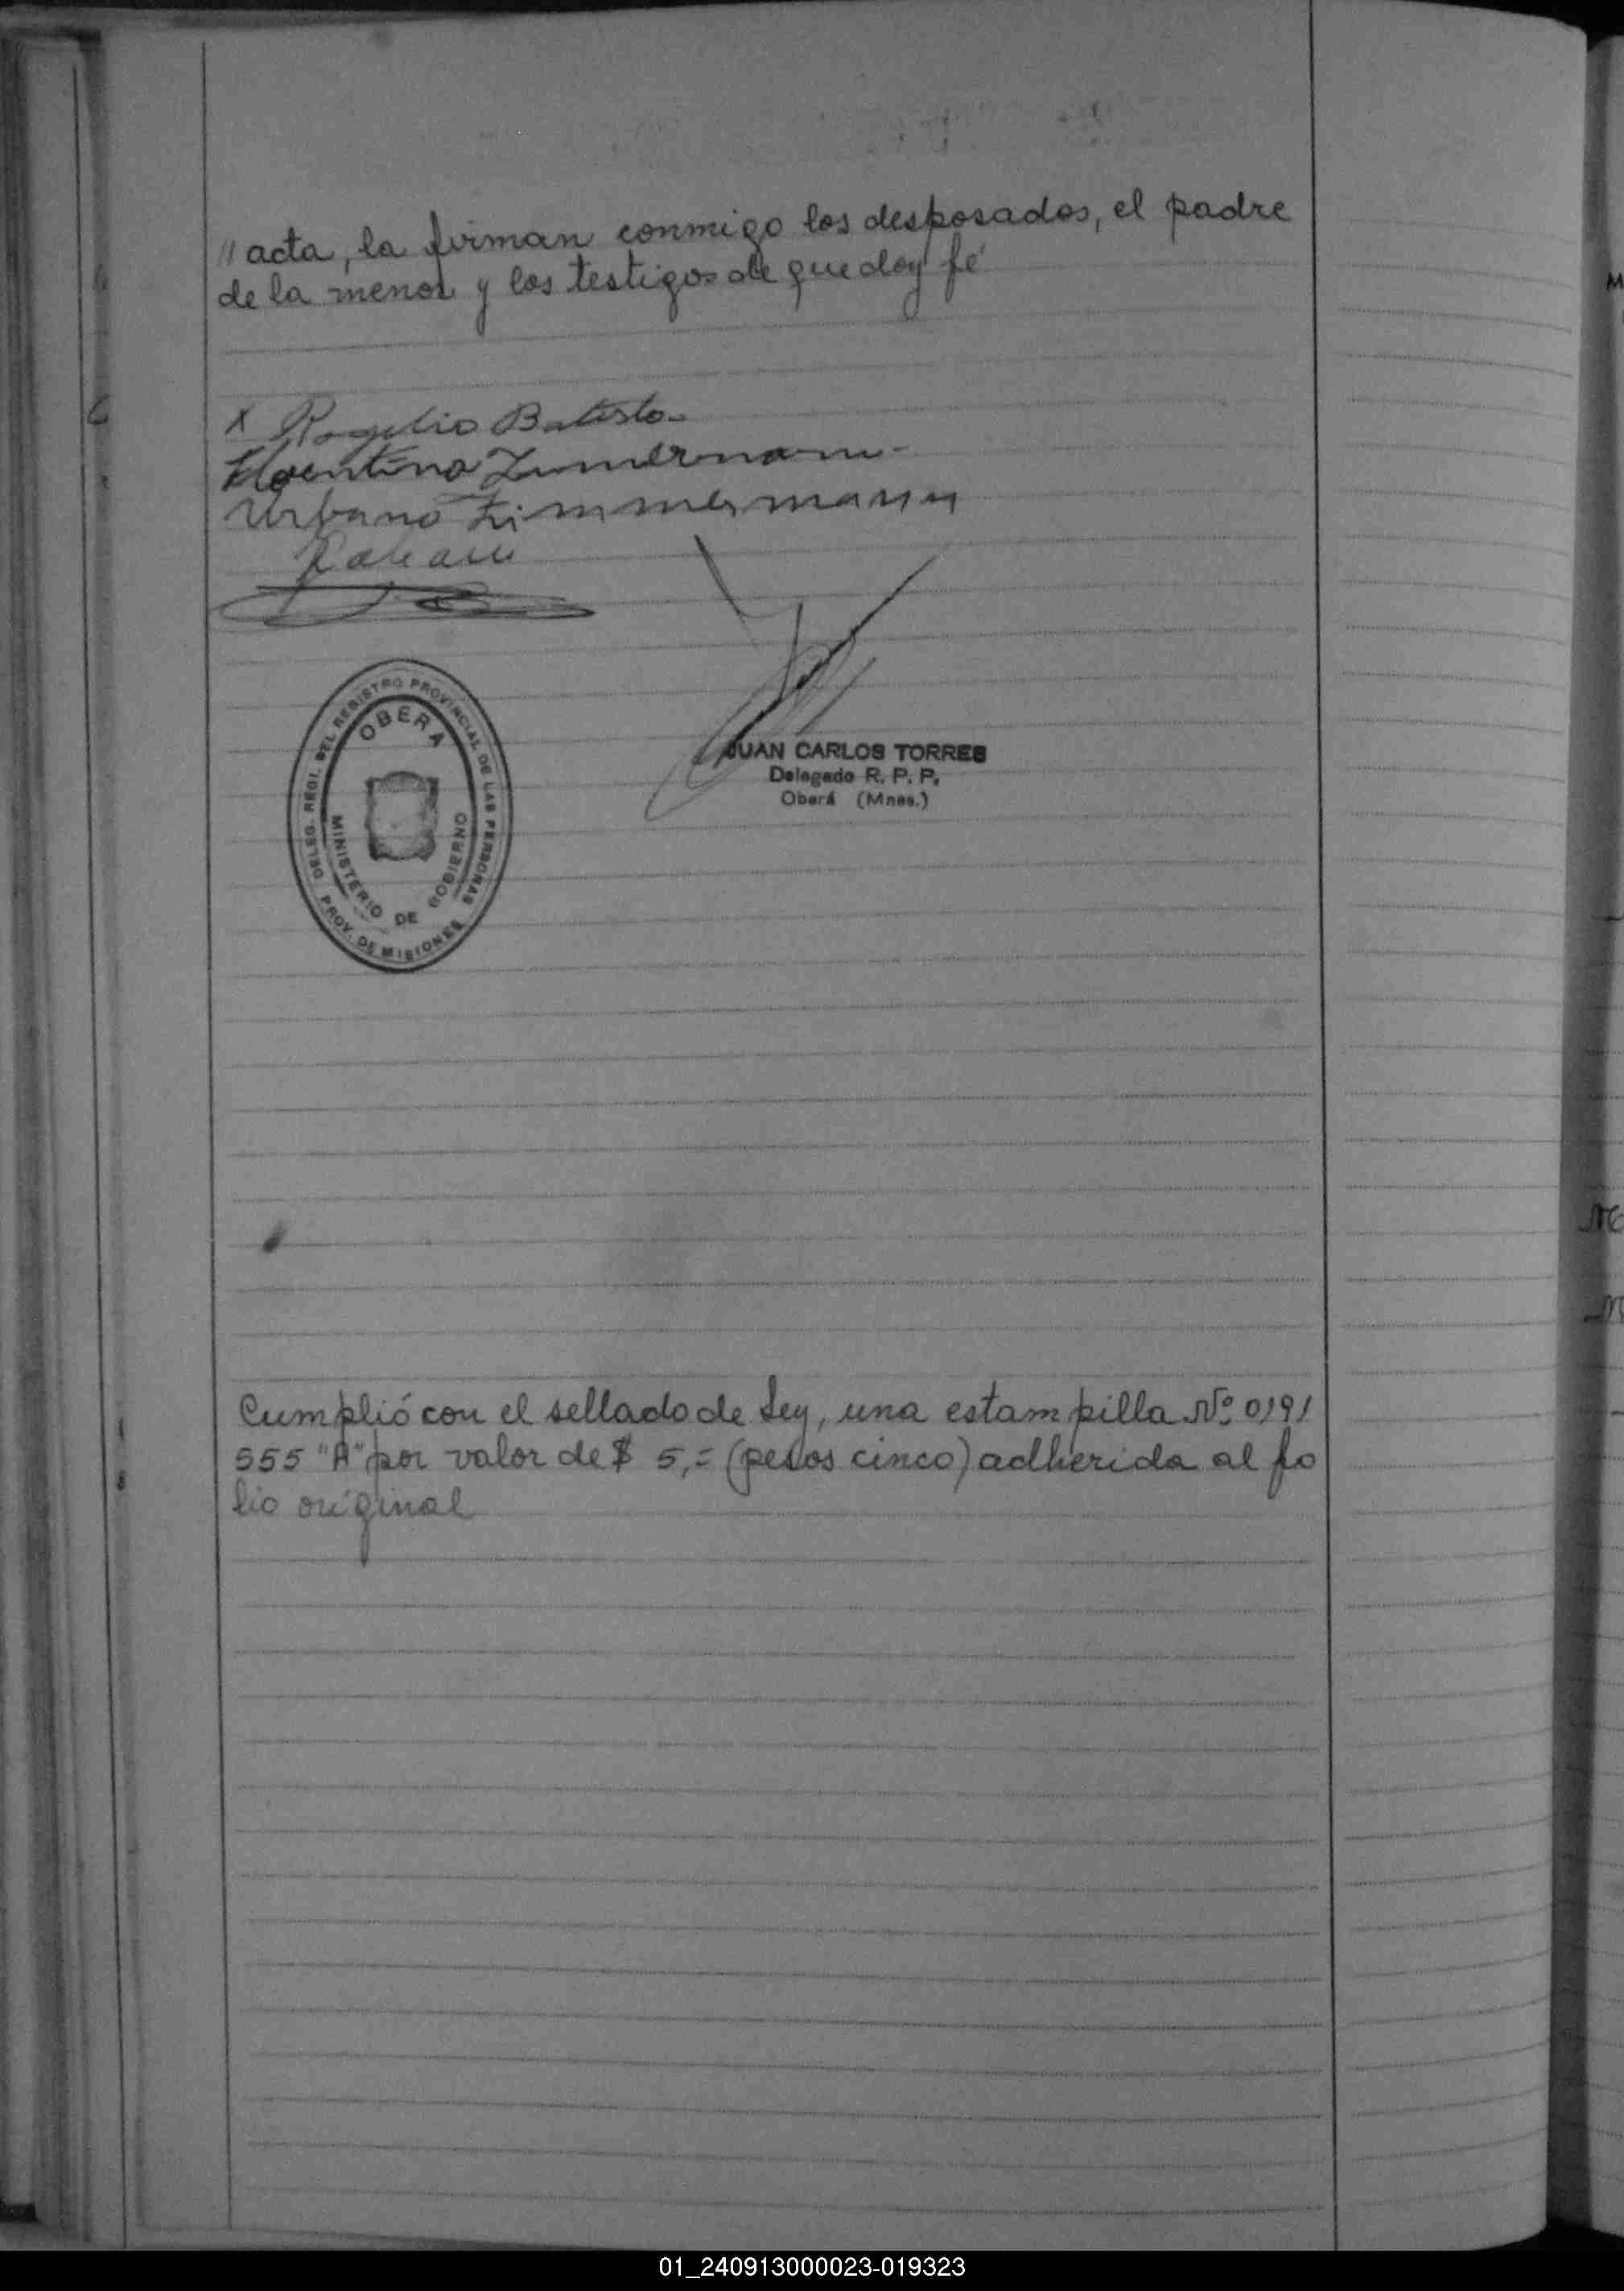 // acta, la firman conmigo los desposados, el padre
de la menor y los testigos de que doy fé
x Rogelio Batisto
Florentina Zimermann
Urbano Zimmermann
JUAN CARLOS TORRES
Delegado R. P. P.
Oberá (Mnes.)
DELEG. REGI. DEL REGISTRO PROVINCIAL DE LAS PERSONAS
OBERA
MINISTERIO DE GOBIERNO
PROV. DE MISIONES
Cumplió con el sellado de Ley, una estampilla Nº 0191
555 "A" por valor de $ 5,= (pesos cinco) adherida al fo
lio original
01_240913000023-019323